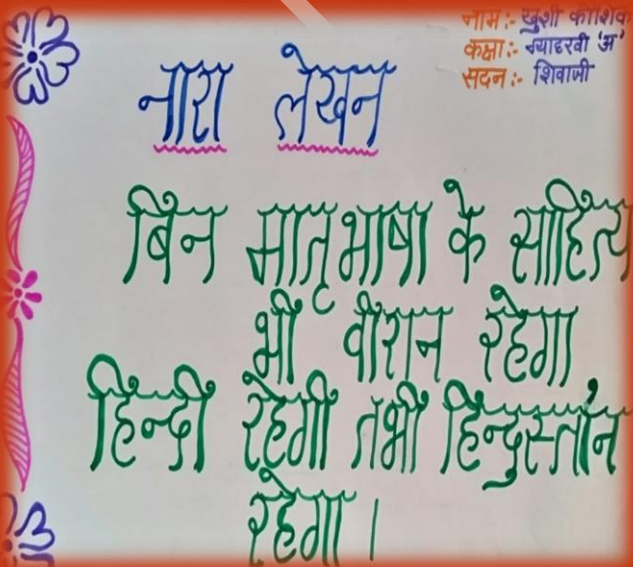 नाम :- खुशी कौशिक
कक्षा :- ग्याहरवी 'अ'
सदन :- शिवाजी
नारा लेखन
बिन मातृभाषा के साहित्य
भी वीरान रहेगा,
हिन्दी रहेगी तभी हिन्दुस्तान
रहेगा ।